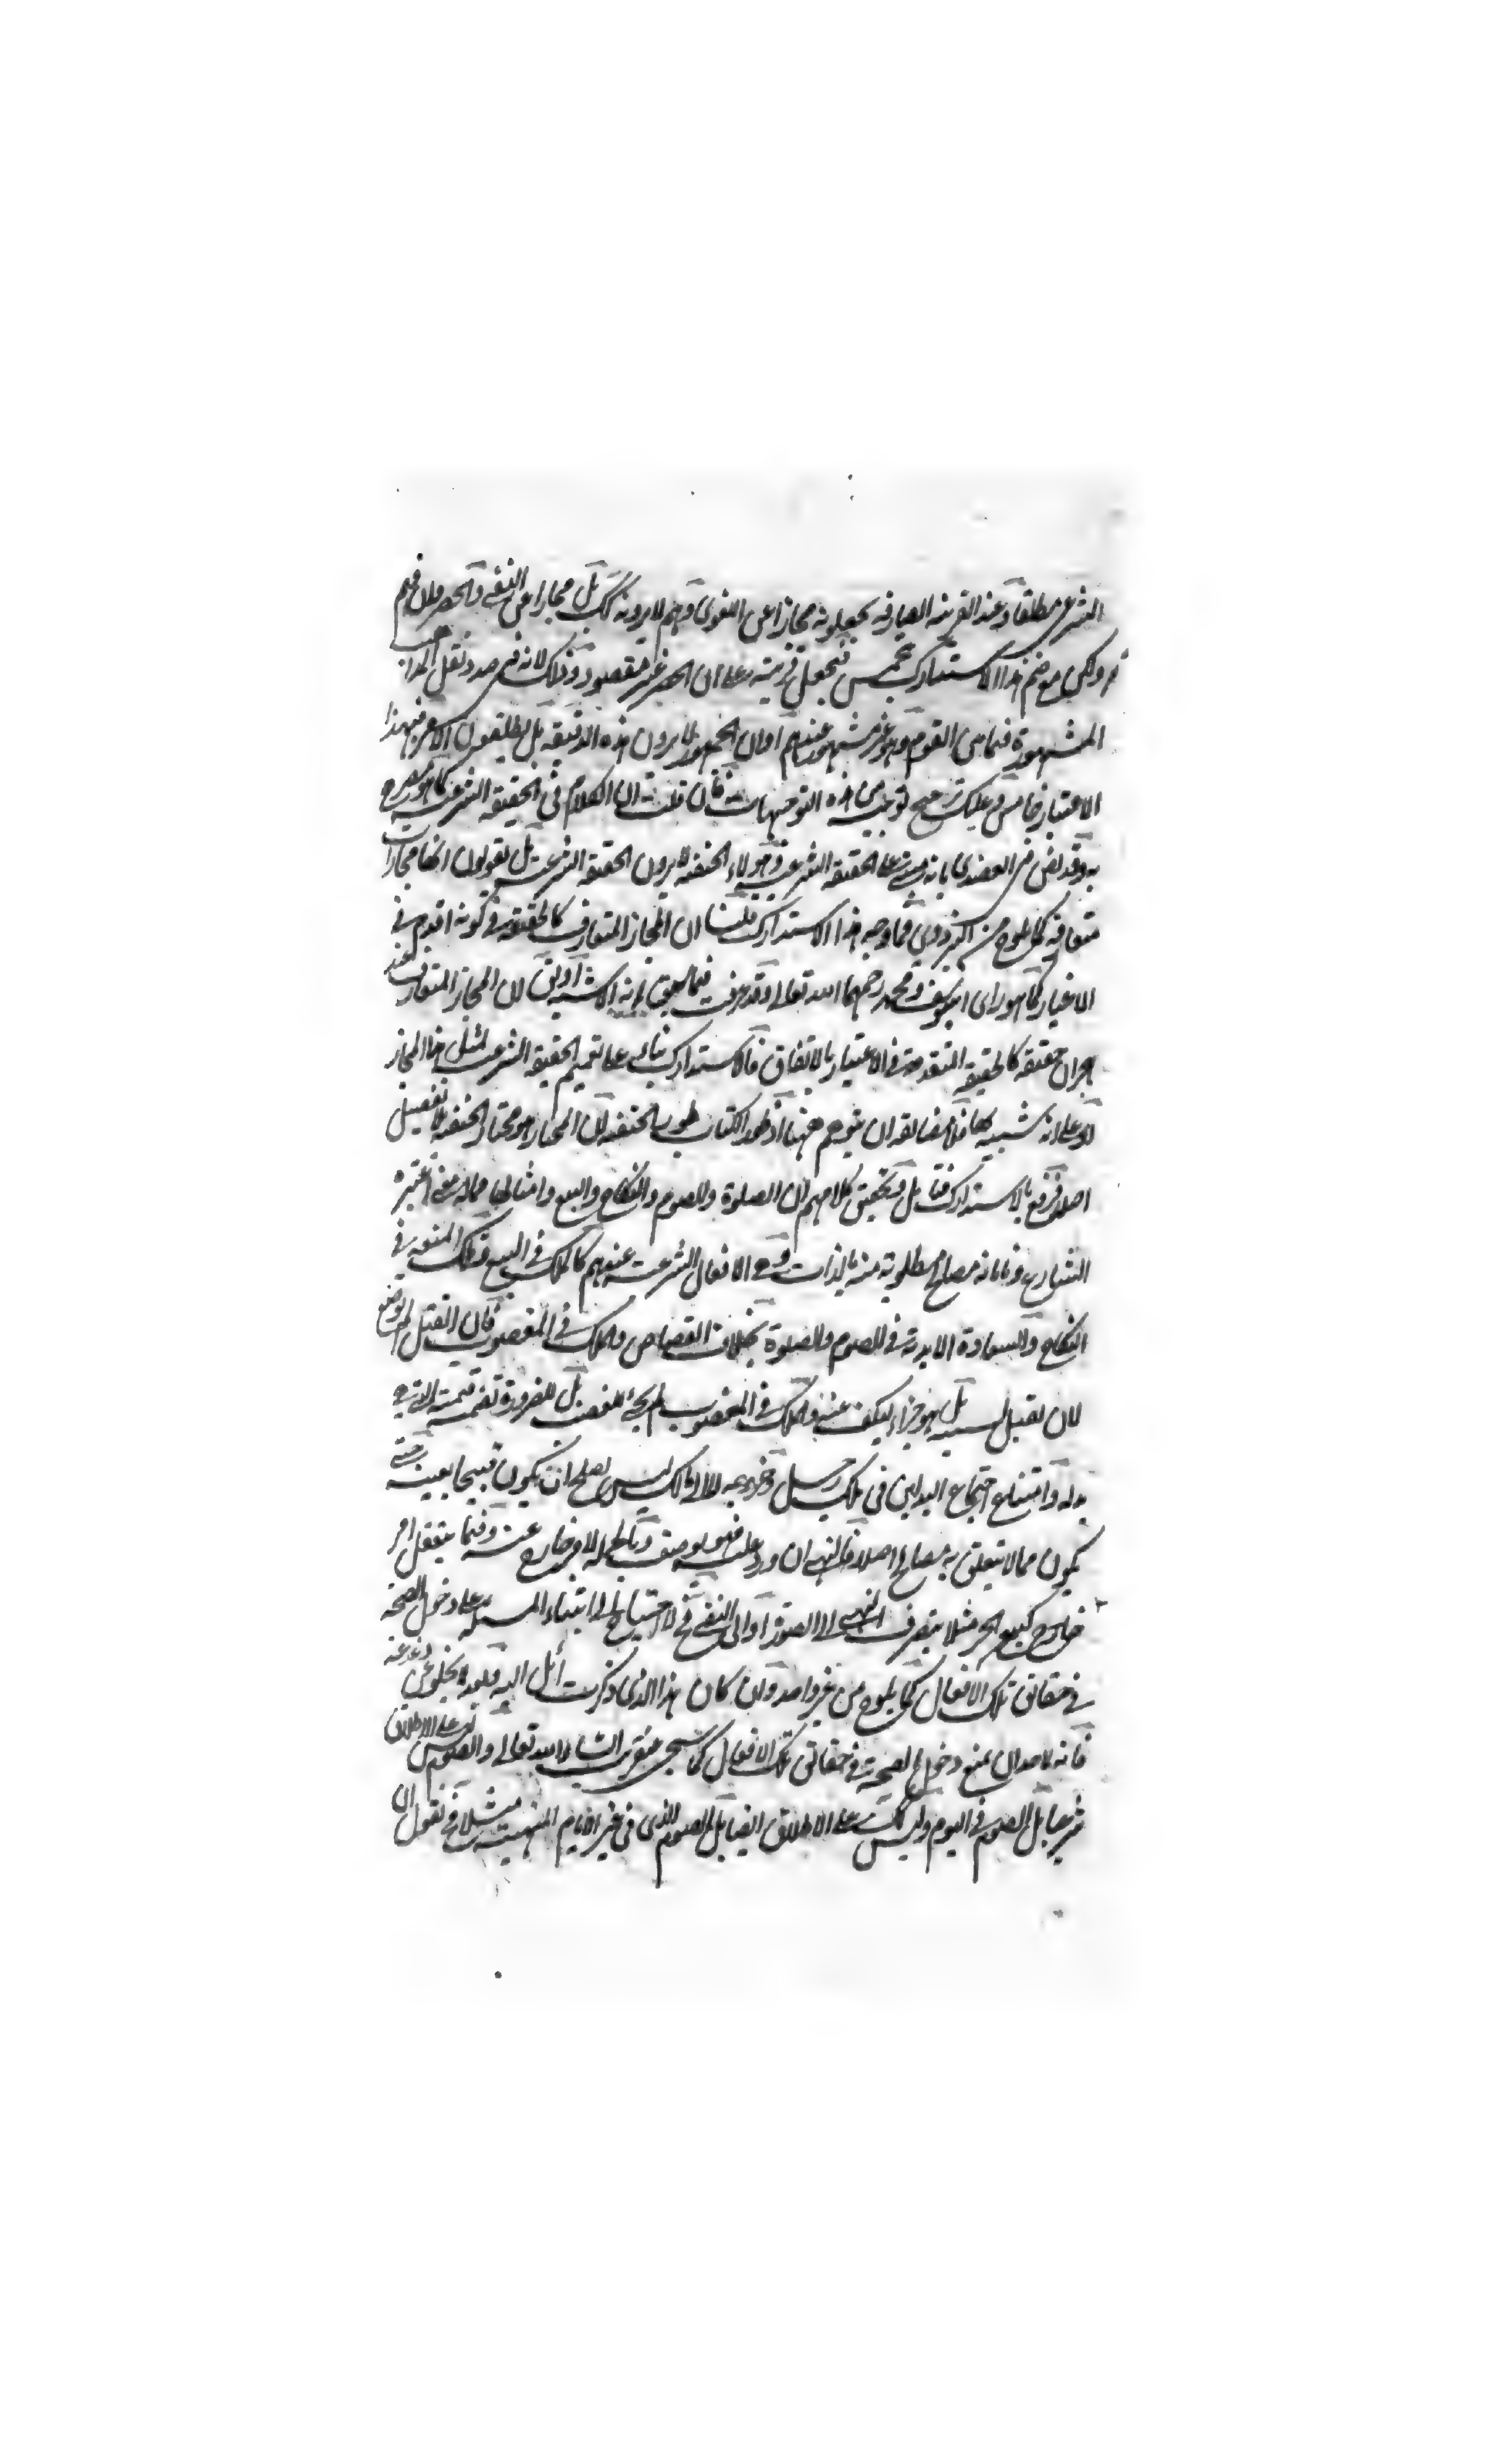 الشرعي مطلقا وعند القرينة الصارفة يجعلونه مجازا عن اللغوي وهم لا يرونه كك بل مجازا عن النفي والحصر ولان فهم
ولكن موضع هذا الاستدراك فيجعل قرينة على ان الحصر غير مقصود وذلك لانه في صدد نقل المذاهب
المشهورة فيما بين القوم وهو غير مشهور عندهم او ان الجمهور لا يرون هذه الدقيقة بل يطلقون الاعم فبهذا
الاعتبار خامس وعليك ترجيح توجيه من هذه التوجيهات فان قلت ان الكلام في الحقيقة الشرعية كما هو مصرح
به وقد نص في العضدي بانه مبني على الحقيقة الشرعية وهؤلاء الحنفية لا يرون الحقيقة الشرعية بل يقولون انها مجازات
متعارفة كما يلوح من البزدوي فما وجه هذا الاستدراك قلنا ان المجاز المتعارف كالحقيقة في كونه اقدم في
الاعتبار كما هو راي ابي يوسف ومحمد رحمهما الله تعالى وقد عرفت فيما سبق انه الاشبه اولى لان المجاز المتعارف عند
هجران حقيقة كالحقيقة المتقدمة في الاعتبار بالاتفاق فالاستدراك بناء على تعميم الحقيقة الشرعية لمثل هذا المجاز
او على انه شبيه بها فلا مضايقة ان يتوهم ههنا اذ طور الكتاب طور الحنفية لان المختار هو مختار الحنفية بلا تفصيل
اصلا فرفع بالاستدراك فتامل وتحقيق كلامهم ان الصلوة والصوم والنكاح والبيع وامثالها مما له معنى اعتبره
الشارع وفائدة مصالح مطلوبة منه بالذات وهي الافعال الشرعية عندهم كالملك في البيع وملك المتعة في
النكاح والسعادة الابدية في الصوم والصلوة بخلاف القصاص والملك في المغصوب فان القتل لم يوضع
لان يقتل لسببه بل هو جزاء ليكف عنه والملك في المغصوب لم يجئ للغصب بل للضرورة قيمته التي هي
بدله وامتناع اجتماع البدلين في ملك رجل وخروجه لا الى مالك ليس يصلح ان يكون قبيحا بعينه حتى
يكون مما لا يتعلق به مصالح اصلا فالنهي ان ورد عليه فهو بوصف وبالجملة لامر خارج عنه وفيما يتعقل امر
خارج كبيع الحر مثلا يتصرف النهي الى الصورة او الى النفي فح لا احتياج الى ابتناء المسئلة على دخول الصحة
في حقائق تلك الافعال كما يلوح من غير واحد وان كان هذا الذي ذكرت ائل اليه وبعد لا يخلو عن دغدغة
فانه لاحد ان يمنع دخول الصحة في حقائق تلك الافعال كما سيجئ عن قريب انشاء الله تعالى والصوم ليس على الاطلاق
شرعيا بل الصوم في اليوم وليس كك على الاطلاق ايضا بل الصوم الذي في غير الايام المنهية مثلا فح نقول ان